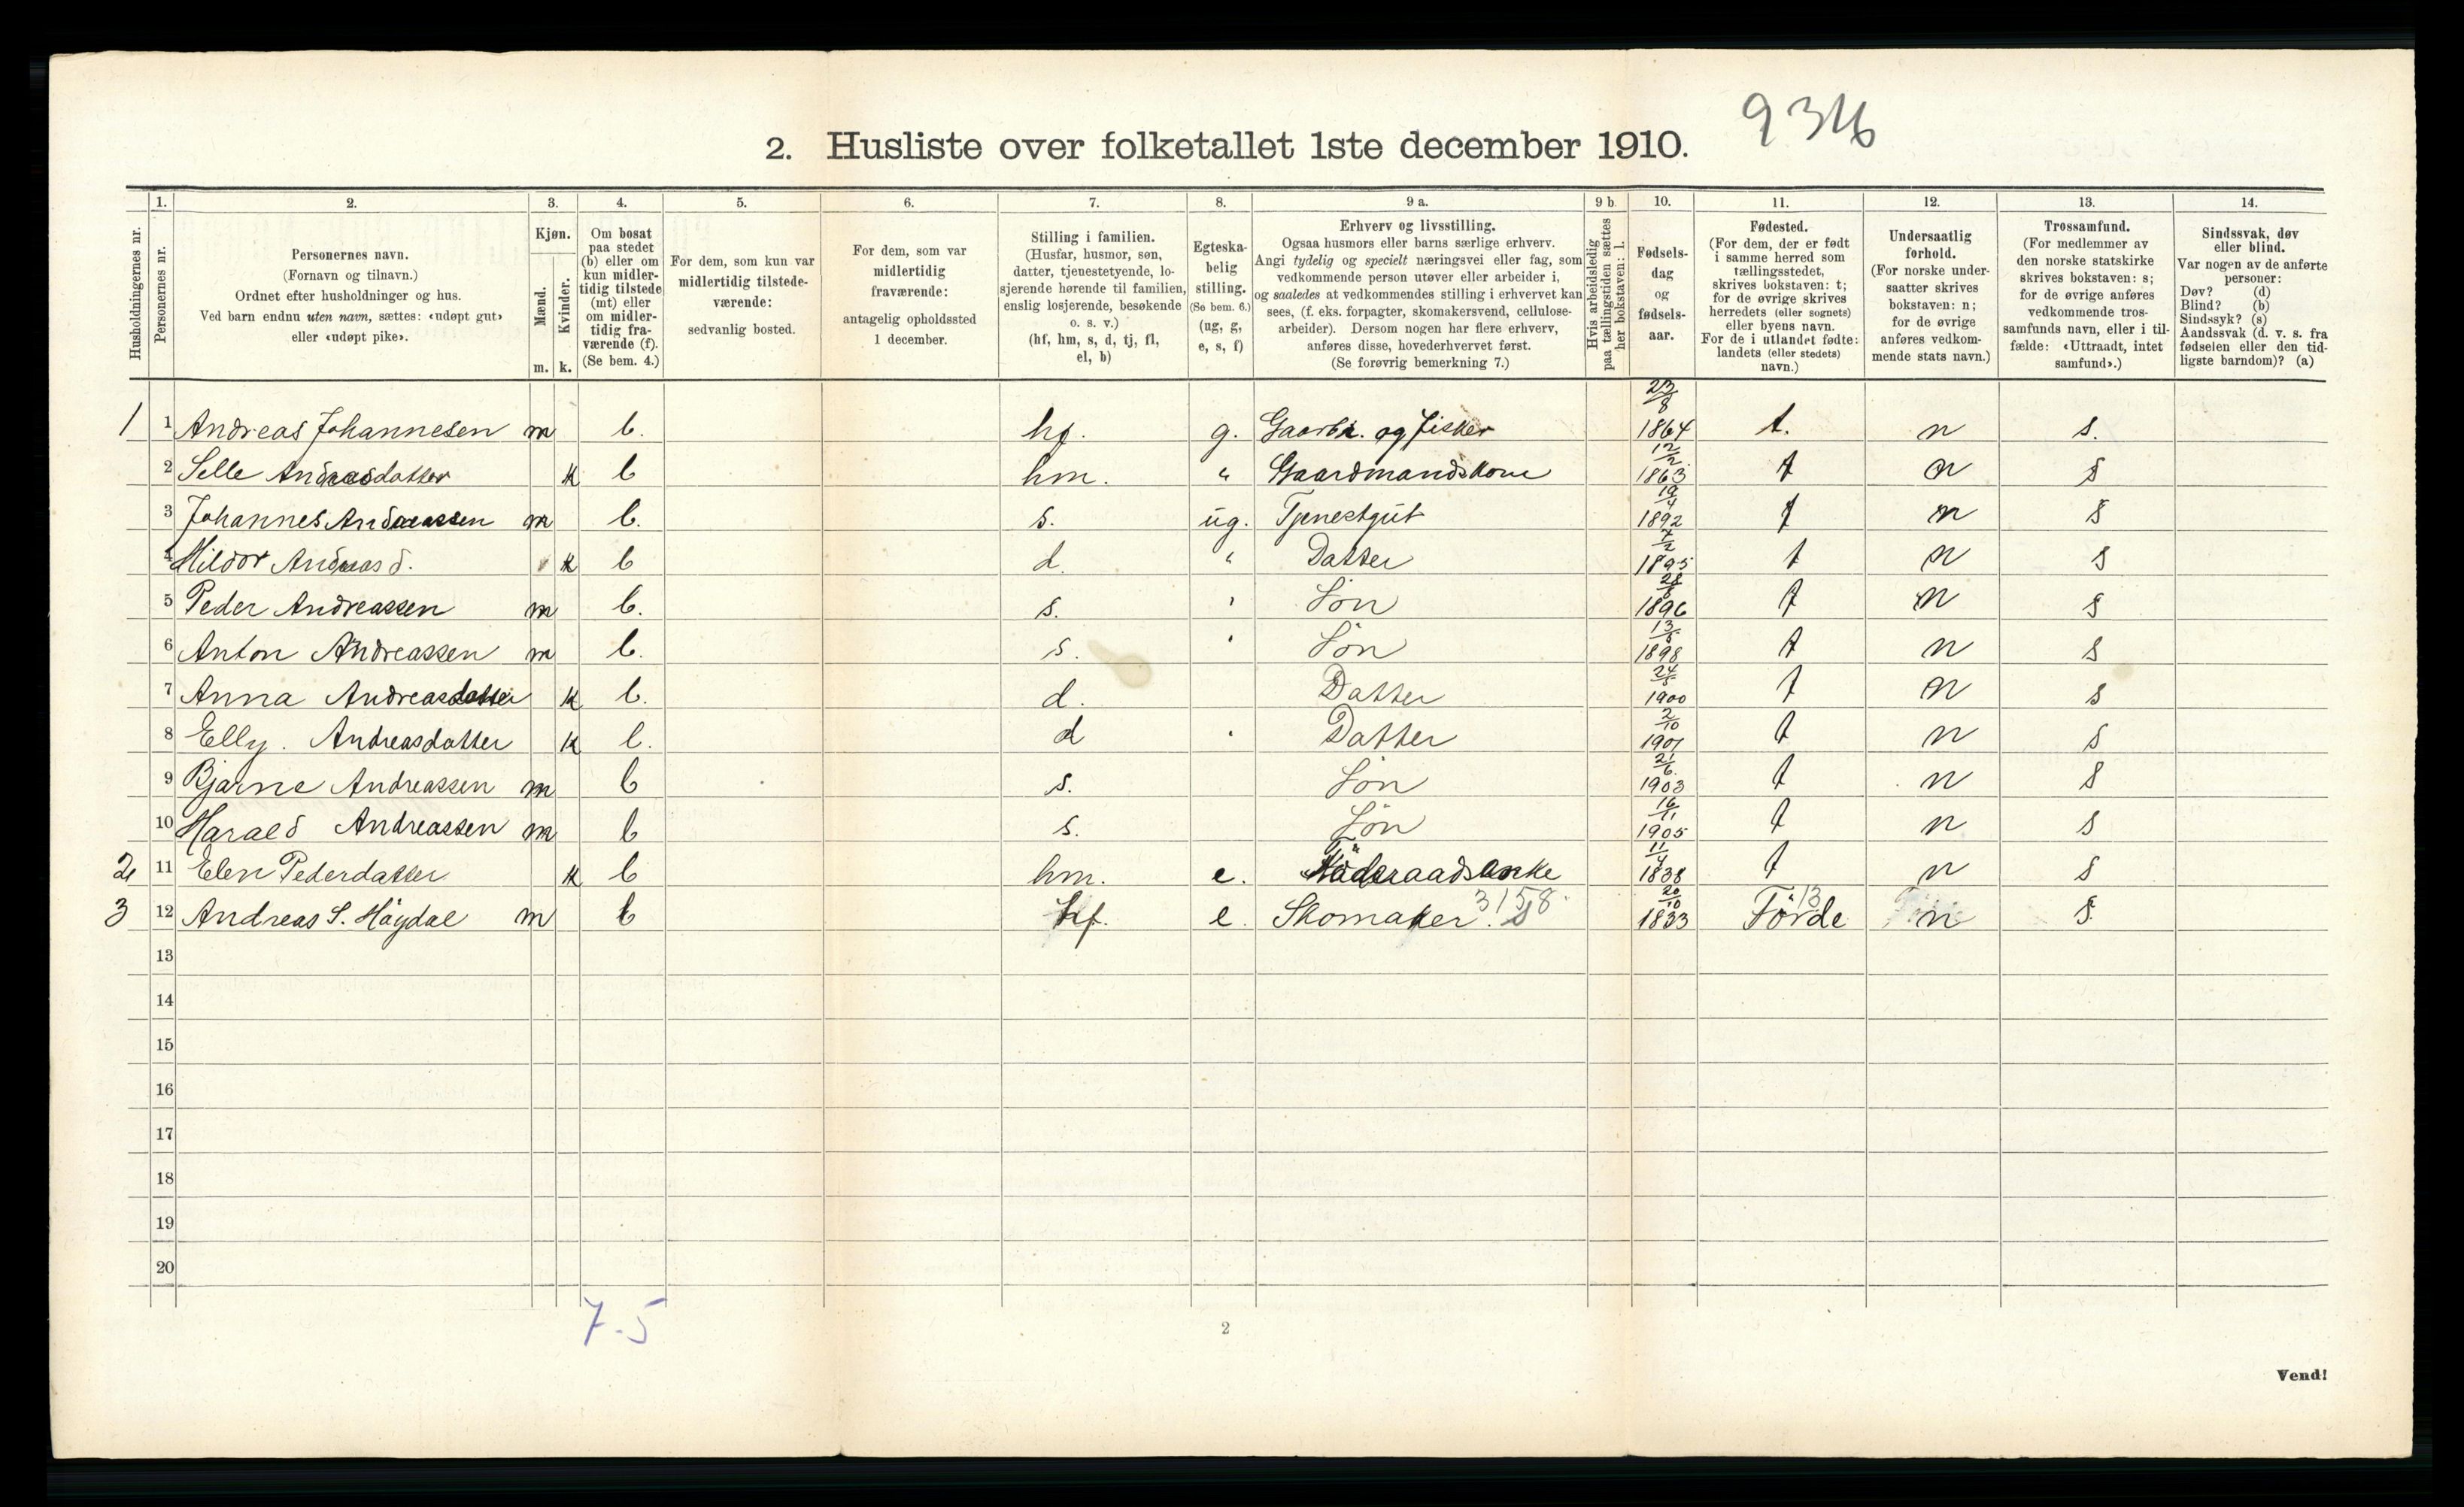 934
2. Husliste over folketallet 1ste december 1910.
Husholdningernes nr.
1. Personernes nr.
2. Personernes navn. (Fornavn og tilnavn.) Ordnet efter husholdninger og hus. Ved barn endnu uten navn, sættes: «udøpt gut» eller «udøpt pike».
3. Kjøn. Mænd. m. Kvinder. k.
4. Om bosat paa stedet (b) eller om kun midlertidig tilstede (mt) eller om midlertidig fraværende (f). (Se bem. 4.)
5. For dem, som kun var midlertidig tilstedeværende: sedvanlig bosted.
6. For dem, som var midlertidig fraværende: antagelig opholdssted 1 december.
7. Stilling i familien. (Husfar, husmor, søn, datter, tjenestetyende, losjerende hørende til familien, enslig losjerende, besøkende o. s. v.) (hf, hm, s, d, tj, fl, el, b)
8. Egteskabelig stilling. (Se bem. 6.) (ug, g, e, s, f)
9 a. Erhverv og livsstilling. Ogsaa husmors eller barns særlige erhverv. Angi tydelig og specielt næringsvei eller fag, som vedkommende person utøver eller arbeider i, og saaledes at vedkommendes stilling i erhvervet kan sees, (f. eks. forpagter, skomakersvend, cellulosearbeider). Dersom nogen har flere erhverv, anføres disse, hovederhvervet først. (Se forøvrig bemerkning 7.)
9 b. Hvis arbeidsledig paa tællingstiden sættes her bokstaven: l.
10. Fødselsdag og fødselsaar.
11. Fødested. (For dem, der er født i samme herred som tællingsstedet, skrives bokstaven: t; for de øvrige skrives herredets (eller sognets) eller byens navn. For de i utlandet fødte: landets (eller stedets) navn.)
12. Undersaatlig forhold. (For norske undersaatter skrives bokstaven: n; for de øvrige anføres vedkommende stats navn.)
13. Trossamfund. (For medlemmer av den norske statskirke skrives bokstaven: s; for de øvrige anføres vedkommende trossamfunds navn, eller i tilfælde: «Uttraadt, intet samfund».)
14. Sindssvak, døv eller blind. Var nogen av de anførte personer: Døv? (d) Blind? (b) Sindssyk? (s) Aandssvak (d. v. s. fra fødselen eller den tidligste barndom)? (a)
1 1 Andreas Johannesen m b. hf. g. Gaardbr. og fisker 1864 t. n s.
2 Selle Andreasdatter k b hm. " Gaardmandskone 12/2 1863 t n s
3 Johannes Andreassen m b. s. ug. Tjenestgut 19/4 1892 t n s
4 Hildor Andreasd. k b d. " Datter 7/2 1895 t n s
5 Peder Andreassen m b. s. " Søn 1896 t n s
6 Anton Andreassen m b. s. " Søn 1898 t n s
7 Anna Andreasdatter k b. d. Datter 1900 t n s
8 Elly. Andreasdatter k b. d " Datter 2/10 1901 t n s
9 Bjarne Andreassen m b s. Søn 21/6. 1903 t n s
10 Harald Andreassen m b s. Søn 1905 t n s
2 11 Elen Pederdatter k b hm. e. 11/4 1838 t n s
3 12 Andreas S. Høydal m b hf. e. Skomaker. 3158. 20/10 1833 Førde 13 n s.
13
14
15
16
17
18
19
20
7-5
2
Vend!